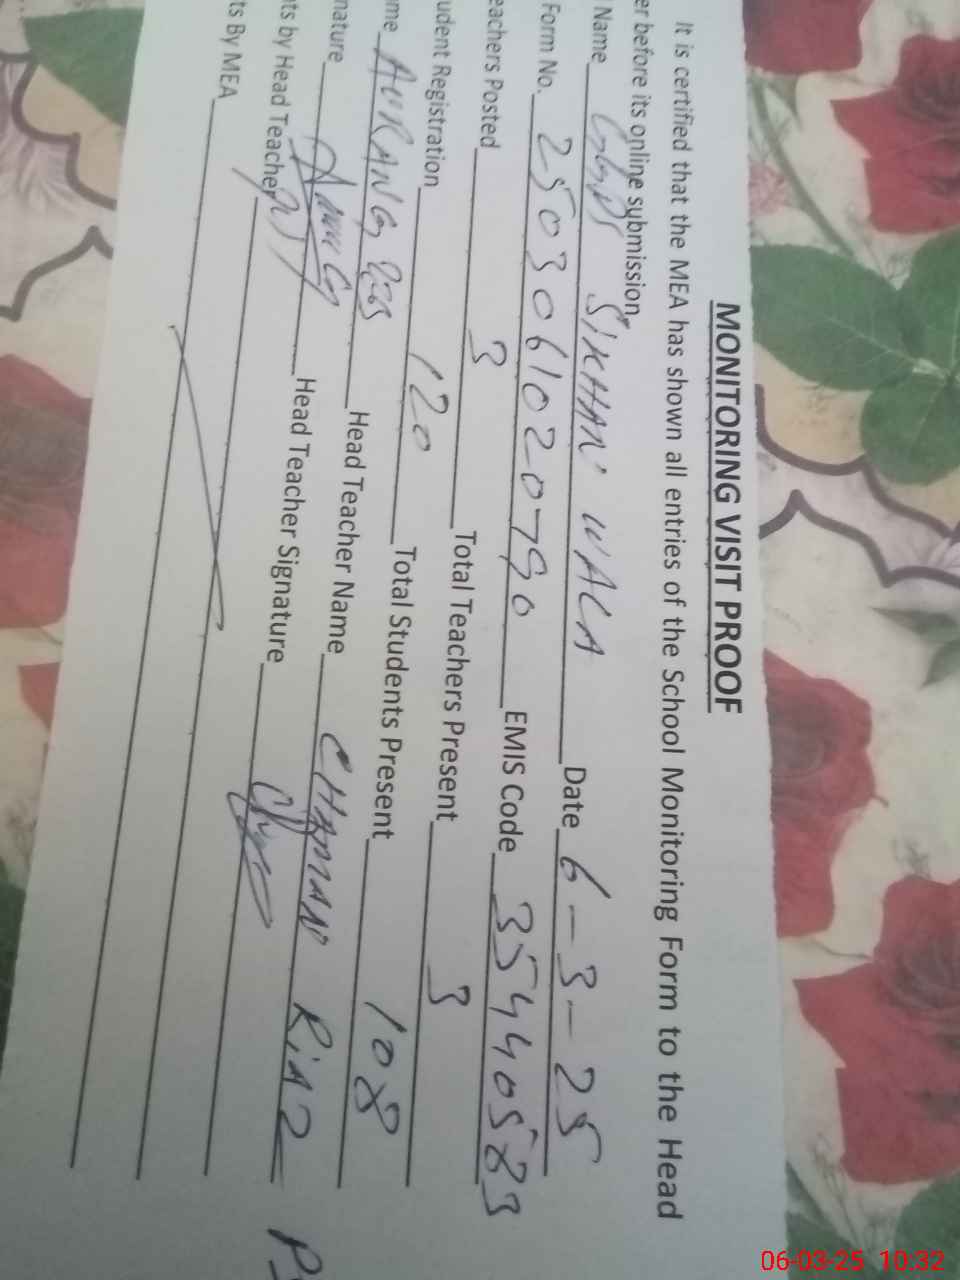 MONITORING VISIT PROOF
It is certified that the MEA has shown all entries of the School Monitoring Form to the Head
er before its online submission.
Name SIKHAN WALA Date 6-3-25
Form No. 2503061020790 EMIS Code 35440583
eachers Posted 3 Total Teachers Present 3
udent Registration 120 Total Students Present 108
me AURANG ZEB Head Teacher Name CHAMAN RIAZ
nature Head Teacher Signature
ts by Head Teacher
ts By MEA
06-03-25 10:32